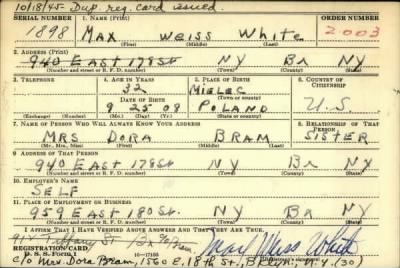 10/18/45- Dup. reg. card issued.
SERIAL NUMBER 1. NAME (Print) ORDER NUMBER
1898 MAX WEISS WHITE 2003
(First) (Middle) (Last)
2. ADDRESS (Print)
940 EAST 178 St NY Bx NY
(Number and street or R. F. D. number) (Town) (County) (State)
3. TELEPHONE 4. AGE IN YEARS 5. PLACE OF BIRTH 6. COUNTRY OF CITIZENSHIP
32 MIELEC
DATE OF BIRTH (Town or county)
9 25 08 POLAND U.S
(Exchange) (Number) (Mo.) (Day) (Yr.) (State or country)
7. NAME OF PERSON WHO WILL ALWAYS KNOW YOUR ADDRESS 8. RELATIONSHIP OF THAT PERSON
MRS DORA BRAM SISTER
(Mr., Mrs., Miss) (First) (Middle) (Last)
9. ADDRESS OF THAT PERSON
940 EAST 178 St NY Bx NY
(Number and street or R. F. D. number) (Town) (County) (State)
10. EMPLOYER'S NAME
SELF
11. PLACE OF EMPLOYMENT OR BUSINESS
959 EAST 180 St. NY Bx NY
(Number and street or R. F. D. number) (Town) (County) (State)
I AFFIRM THAT I HAVE VERIFIED ABOVE ANSWERS AND THAT THEY ARE TRUE.
Tiffany St Bx
REGISTRATION CARD
D. S. S. FORM 1 16-17105 Max Weiss White
c/o Mrs. Dora Bram, 1560 E. 18th St., Bklyn, N.Y. (30)